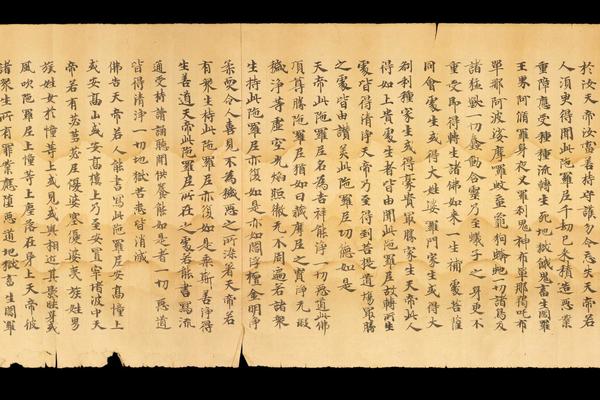 於汝天帝汝當善持守護勿令忘失天帝若
人須臾得聞此陀羅尼千劫已來積造惡業
重障應受種種流轉生死地獄餓鬼畜生閻羅
王界阿脩羅身夜叉羅剎鬼神布單那羯吒布
單那阿波娑摩羅蚊虻龜狗蟒蛇一切諸鳥及
諸猛獸一切蠢動含靈乃至蟻子之身更不
重受即得轉生諸佛如來一生補處菩薩
同會處生或得大姓婆羅門家生或得大
剎利種家生或得豪貴最勝家生天帝此人
得如上貴處生者皆由聞此陀羅尼故轉所生
處皆得清淨天帝乃至得到菩提道場最勝
之處皆由讚美此陀羅尼功德如是
天帝此陀羅尼名為吉祥能淨一切惡道此佛
頂尊勝陀羅尼猶如日藏摩尼之寶淨无瑕
穢淨等虛空光焰照徹无不周遍若諸衆
生持此陀羅尼亦復如是亦如閻浮檀金明淨
柔耎令人喜見不為穢惡之所染著天帝若
有衆生持此陀羅尼亦復如是乘斯善淨得
生善道天帝此陀羅尼所在之處若能書寫流
通受持讀誦聽聞供養能如是者一切惡道
皆得清淨一切地獄苦悉皆消滅
佛告天帝若人能書寫此陀羅尼安高幢上
或安高山或安高樓上乃至安置窣堵波中天
帝若有苾芻苾芻尼優婆塞優婆夷族姓男
族姓女於幢等上或見或與相近其影映身或
風吹陀羅尼上幢等上塵落在身上天帝彼
諸衆生所有罪業應墮惡道地獄畜生閻羅